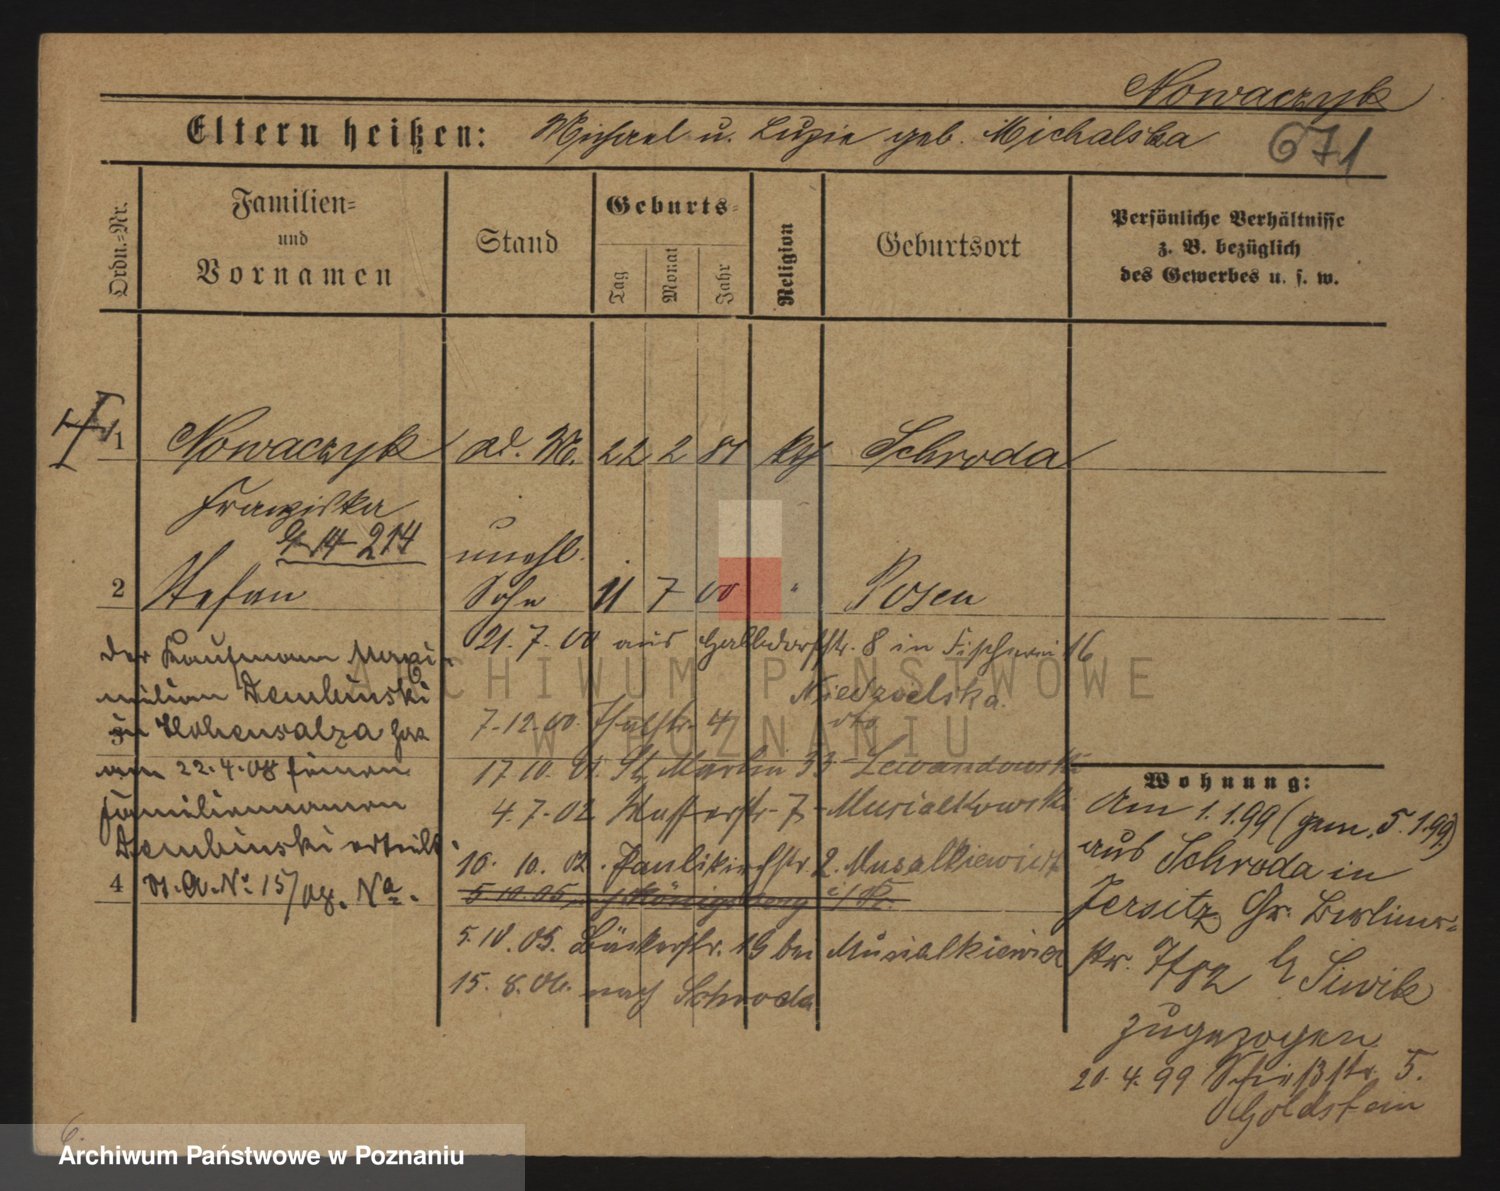 Nowaczyk
Eltern heißen: Michael u. Luzie geb. Michalska
671
Ordn.-Nr.
Familien-
und
Vornamen
Stand
Geburts-
Tag
Monat
Jahr
Religion
Geburtsort
Persönliche Verhältnisse
z. B. bezüglich
des Gewerbes u. s. w.
1 Nowaczyk led. M. 22 2 81 kth Schroda
Franziska
G 14 214
unehl.
2 Stefan Sohn 11 7 00 " Posen
21. 7. 00 aus Halbdorfstr. 8 in Fischerei 16
Niedzoelska
7-12-00. Thalstr. 4 dto
17 10. 01. St. Martin 33 - Lewandowski
4. 7. 02 Wasserstr. 7 - Musialkowski
10. 10. 02. Paulikirchstr. 2. Musalkiewicz
5 10. 05, Königsberg i/Pr.
5. 10. 05. Bäckerstr. 19 bei Musialkiewicz
15. 8. 06. nach Schroda
der Kaufmann Maxi-
milian Dembinski
in Hohensalza hat
3
am 22. 4. 08 seinen
Familiennamen
Dembinski erteilt.
4 St. A. No 15/08. Na.
Wohnung:
Am 1. 1. 99 (gem. 5. 1. 99)
aus Schroda in
Jersitz Gr. Berliner-
str. 7/82 b Siwik
zugezogen.
20. 4. 99 Schießstr. 5.
Goldstein
6.
ARCHIWUM PAŃSTWOWE
W POZNANIU
Archiwum Państwowe w Poznaniu